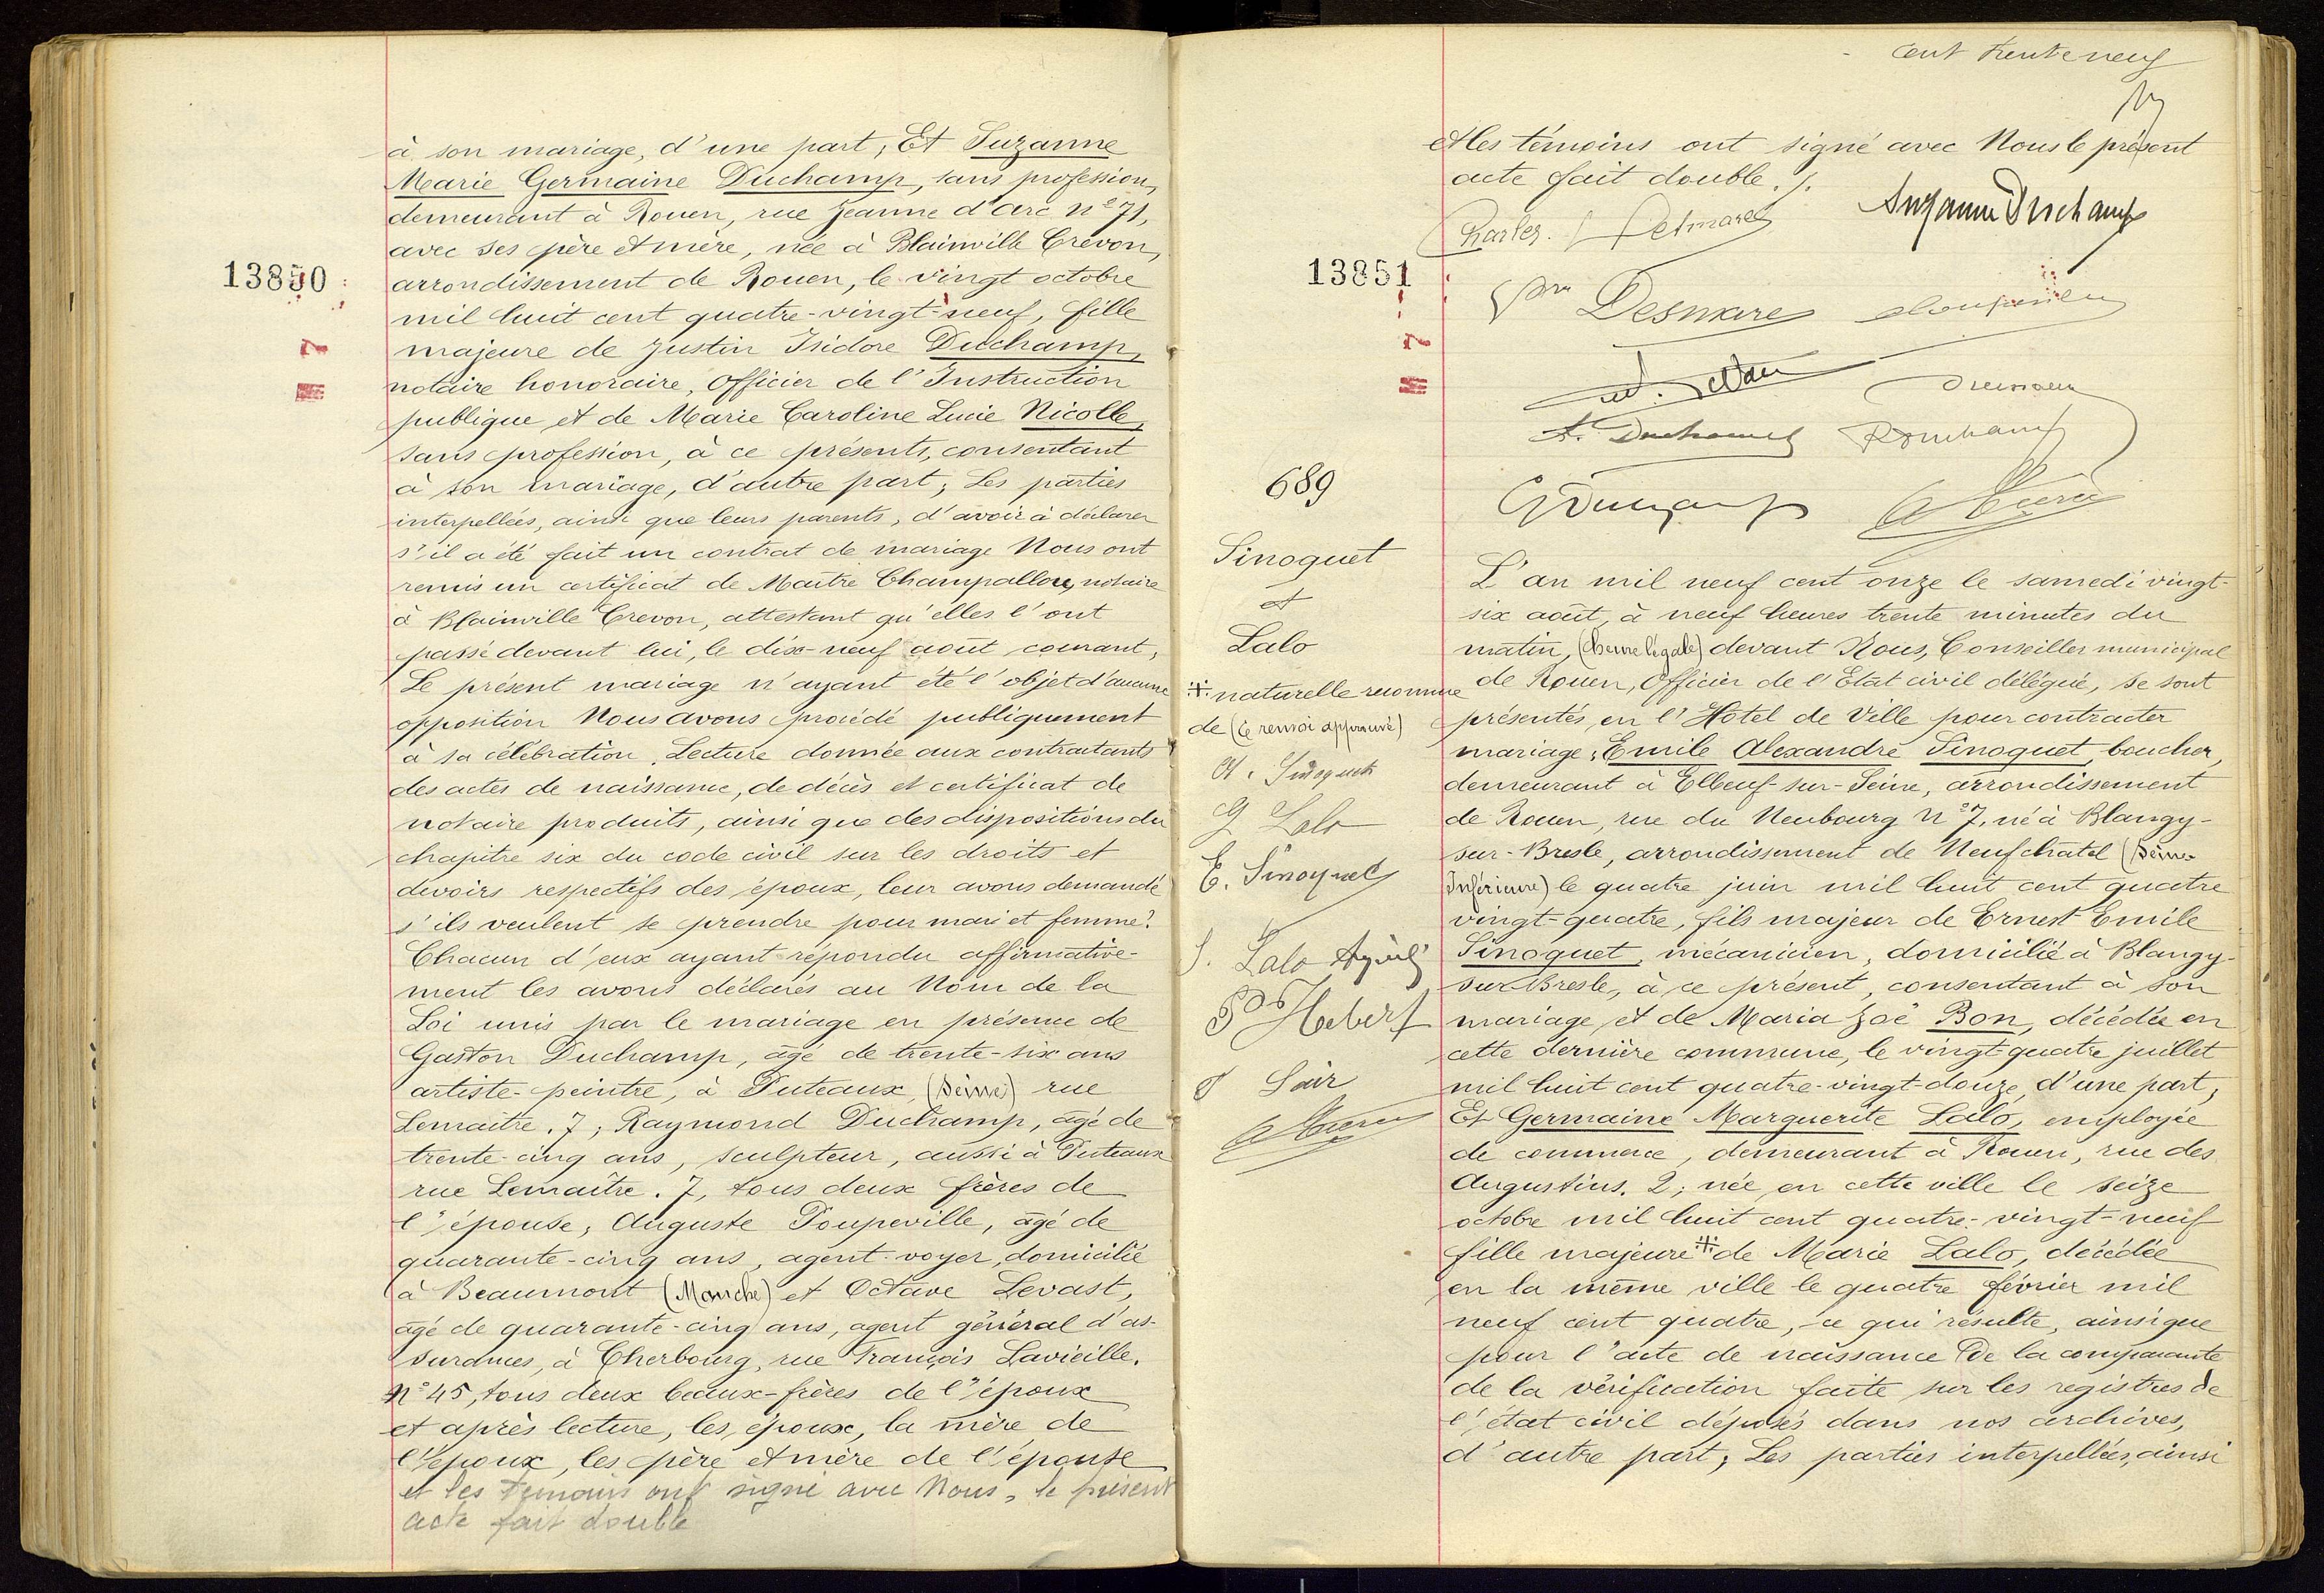 à son mariage, d'une part; Et Suzanne
Marie Germaine Duchamp, sans profession,
demeurant à Rouen, rue Jeanne d'Arc n° 71,
avec ses père et mère, née à Blainville Crevon,
13850
arrondissement de Rouen, le vingt octobre
mil huit cent quatre-vingt-neuf, fille
majeure de Justin Isidore Duchamp,
notaire honoraire, Officier de l'Instruction
publique et de Marie Caroline Lucie Nicolle,
sans profession, à ce présents, consentant
à son mariage, d'autre part; Les parties
interpellées, ainsi que leurs parents, d'avoir à déclarer
s'il a été fait un contrat de mariage Nous ont
remis un certificat de Maître Champallou, notaire
à Blainville Crevon, attestant qu'elles l'ont
passé devant lui, le dix-neuf août courant,
Le présent mariage n'ayant été l'objet d'aucune
opposition Nous avons procédé publiquement
à sa célébration. Lecture donnée aux contractants
des actes de naissance, de décès et certificat de
notaire produits, ainsi que des dispositions du
chapitre six du code civil sur les droits et
devoirs respectifs des époux, leur avons demandé
s'ils veulent se prendre pour mari et femme?
Chacun d'eux ayant répondu affirmative-
ment les avons déclarés au Nom de la
Loi unis par le mariage en présence de
Gaston Duchamp, âgé de trente-six ans
artiste-peintre, à Puteaux, (Seine) rue
Lemaître. 7; Raymond Duchamp, âgé de
trente-cinq ans, sculpteur, aussi à Puteaux
rue Lemaître. 7, tous deux frères de
l'épouse; Auguste Poupeville, âgé de
quarante-cinq ans, agent-voyer, domicilié
à Beaumont (Manche) et Octave Levast,
âgé de quarante-cinq ans, agent général d'as-
surances, à Cherbourg, rue François Lavieille.
N° 45, tous deux beaux-frères de l'époux
et après lecture, les époux, la mère de
l'époux, les père et mère de l'épouse
et les témoins ont signé avec Nous, le présent
acte fait double
cent trente neuf
et les témoins ont signé avec Nous le présent
acte fait double. /.
Charles Desmares
Suzanne Duchamp
13851
Desmares
A. Duchamp
R Duchamp
G Duchamp
689
Sinoquet
et
Lalo
naturelle reconnue
de (ce renvoi approuvé)
A. Sinoquet
G Lalo
E. Sinoquet
Lalo
Hebert
L'an mil neuf cent onze le samedi vingt-
six août, à neuf heures trente minutes du
matin, (heure légale) devant Nous, Conseiller municipal
de Rouen, Officier de l'Etat civil délégué, se sont
présentés en l'Hotel de Ville pour contracter
mariage: Emile Alexandre Sinoquet, boucher,
demeurant à Elbeuf-sur-Seine, arrondissement
de Rouen, rue du Neubourg N° 7, né à Blangy-
sur-Bresle, arrondissement de Neufchatel (Seine-
Inférieure) le quatre juin mil huit cent quatre
vingt-quatre, fils majeur de Ernest Emile
Sinoquet, mécanicien, domicilié à Blangy-
sur-Bresle, à ce présent, consentant à son
mariage, et de Maria Zoé Bon, décédée en
cette dernière commune, le vingt-quatre juillet
mil huit cent quatre-vingt-douze, d'une part;
Et Germaine Marguerite Lalo, employée
de commerce, demeurant à Rouen, rue des
Augustins. 2; née en cette ville le seize
octobre mil huit cent quatre-vingt-neuf
fille majeure de Marie Lalo, décédée
en la même ville le quatre février mil
neuf cent quatre, ce qui résulte, ainsi que
pour l'acte de naissance de la comparante
de la vérification faite sur les registres de
l'état civil déposés dans nos archives,
d'autre part; Les parties interpellées, ainsi